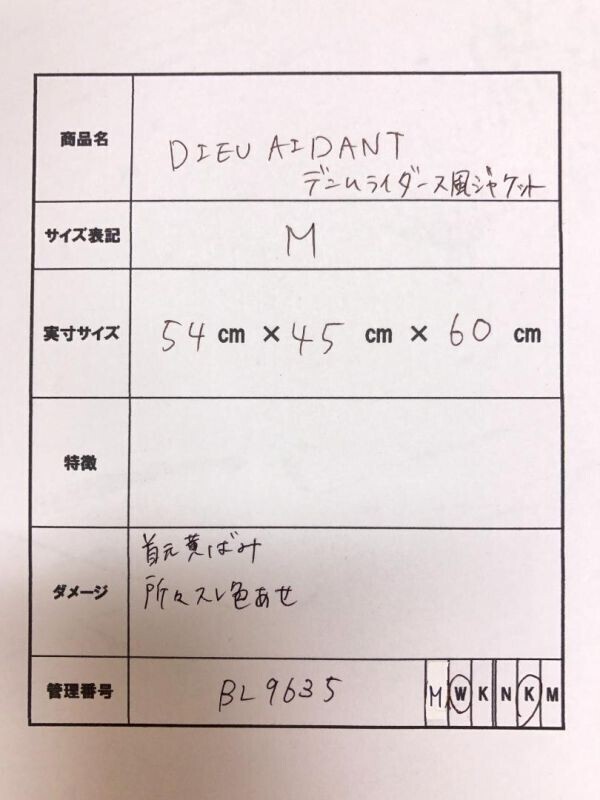 商品名
DIEU AIDANT
デニムライダース風ジャケット
サイズ表記 M
実寸サイズ 54 cm × 45 cm × 60 cm
特徴
ダメージ
首元黄ばみ
所々スレ色あせ
管理番号 BL9635 M W K N K M